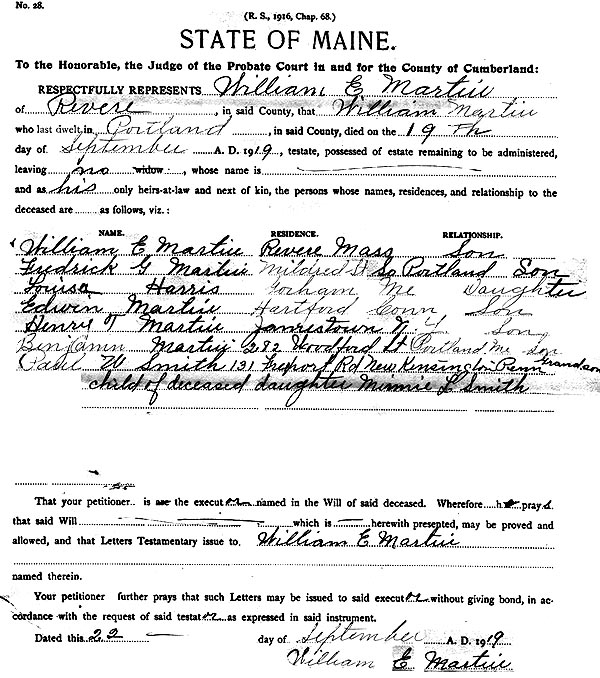 No. 28.
(R. S., 1916, Chap. 68.)
STATE OF MAINE.
To the Honorable, the Judge of the Probate Court in and for the County of Cumberland:
RESPECTFULLY REPRESENTS William E Martin
of Revere, in said County, that William Martin
who last dwelt in Portland, in said County, died on the 19 th
day of September A. D. 1919, testate, possessed of estate remaining to be administered,
leaving no widow, whose name is
and as his only heirs-at-law and next of kin, the persons whose names, residences, and relationship to the
deceased are as follows, viz.:
NAME. RESIDENCE. RELATIONSHIP.
William E Martin Revere Mass Son
Fredrick G Martin Mildred St So Portland Son
Louisa Harris Gorham Me Daughter
Edwin Martin Hartford Conn Son
Henry Martin Jamestown N. Y. Son
Benjamin Martin 282 Woodford St Portland Me son
Paul W Smith 131 Rd New Kensington Penn Grandson
child of deceased daughter Minnie L Smith
That your petitioner is are the executor named in the Will of said deceased. Wherefore he prays
that said Will which is herewith presented, may be proved and
allowed, and that Letters Testamentary issue to William E Martin
named therein.
Your petitioner further prays that such Letters may be issued to said executor without giving bond, in ac-
cordance with the request of said testator as expressed in said instrument.
Dated this 22 day of September A. D. 1919
William E Martin